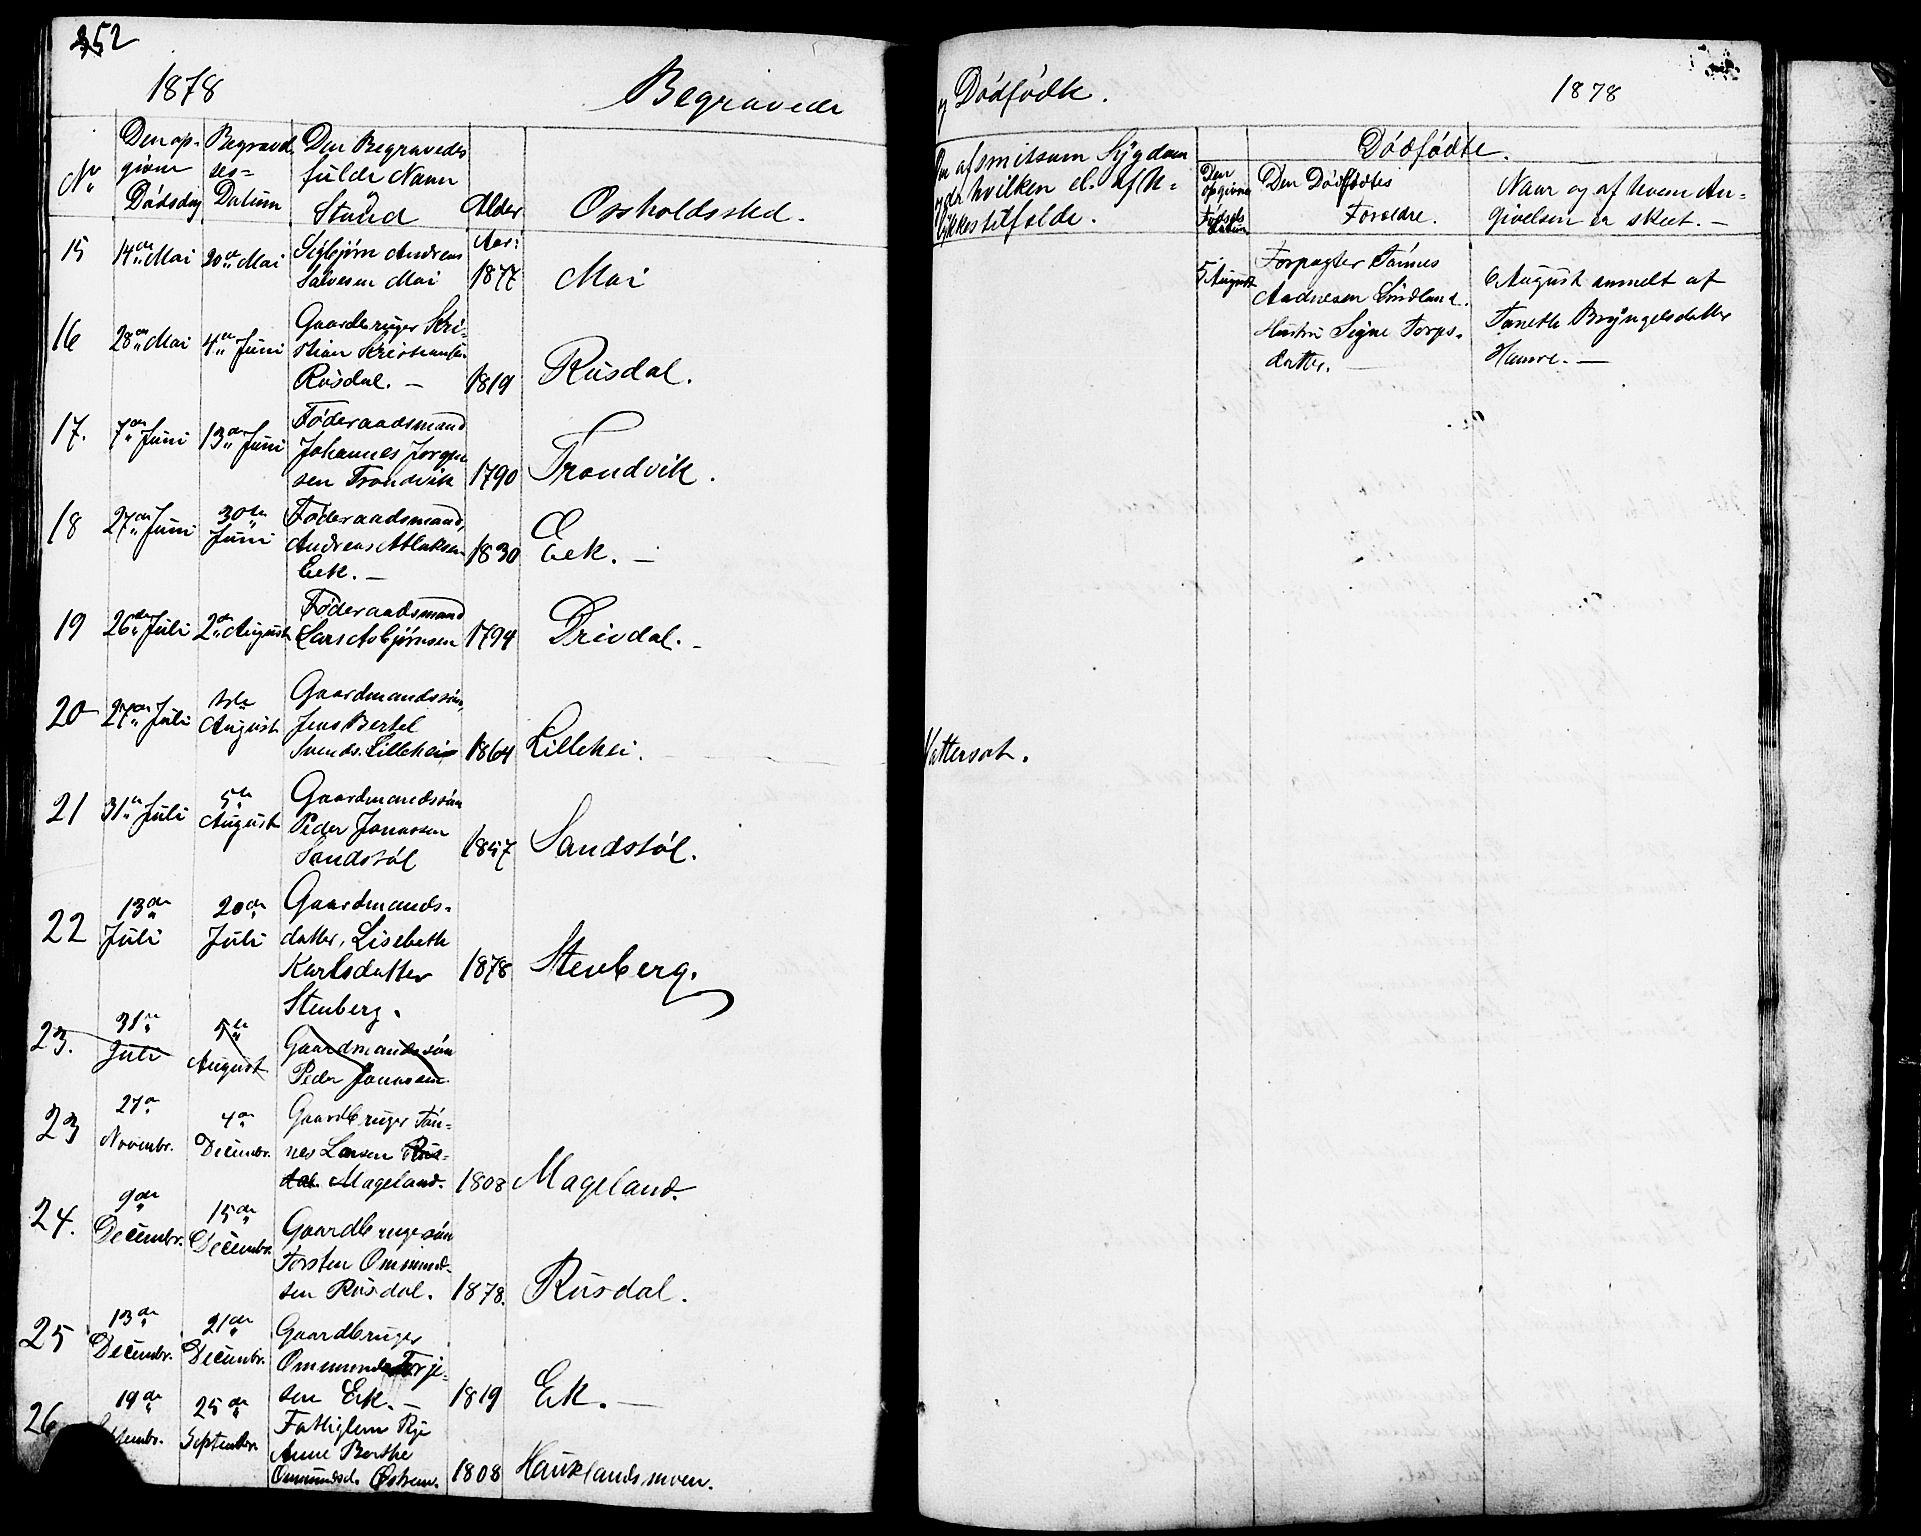 252
1878 Begravede
No
Den op-
givne
Dødsdag
Begravel
ses-
Datum
Den Begravedes
fulde Navn
Stand
Alder
Opholdssted.
Aar:
15 14de Mai 20de Mai Sigbjørn Andreas
Salvesen Moi 1877 Moi
16 28de Mai 4de Juni Gaardbruger Kri-
stian Kristiansen
Rusdal. — 1819 Rusdal.
17. 7de Juni 13de Juni Føderaadsmand
Johannes Jorgen
sen Trondvik 1790 Trondvik.
18 27de Juni 30te Juni Føderaadsmand,
Andreas Atlaksen
Eek. — 1830 Eek. —
19 26de Juli 2den August Føderaadsmand
Lars Asbjørnsen 1794 Drivdal. -
20 27de Juli 1ste August Gaardmandssøn,
Jens Bertel
Svends. Lillehei 1864 Lillehei.
21 31te Juli 5te August Gaardmandssøn
Peder Jonassen
Sandstøl 1857 Sandstøl.
22 13de Juli 20de Juli Gaardmands-
datter, Lisebeth
Karlsdatter 1878 Stenberg.
Stenberg.
23. 31te Juli 5te August Gaardmandssøn
Peder Jonassen
23 27de Novembr. 4de Decembr. Gaardbruger Tøn-
nes Larsen Rus-
dal. Mageland. 1808 Mageland.
24. 9de Decembr. 15de Decembr. Gaardbrugersøn
Torsten Ommund-
sen Rusdal. 1878. Rusdal.
25 13de Decembr. 21de Decembr. Gaardbruger
Ommund Torje-
sen Eek. — 1819 Ek. —
26 19de Septembr. 25de September Fattiglem Pige
Anne Berthe
Ommundsd. Østrem. 1808 Hauklandsmoen.
og Dødfødte. 1878
Om af smitsom Sygdom
og da hvilken el. af U-
lykkestilfælde.
Dødfødte.
Den
opgivne
Fødsels
datum
Den Dødfødtes
Forældre.
Naar og af hvem An-
givelsen er skeet. —
5 August
Forpagter Tønnes
Aadnesen Sindland.
Hustru Signe Torps-
datter.
6 August anmelt af
Tonette Bryngelsdatter
Hamre. —
Vattersot.